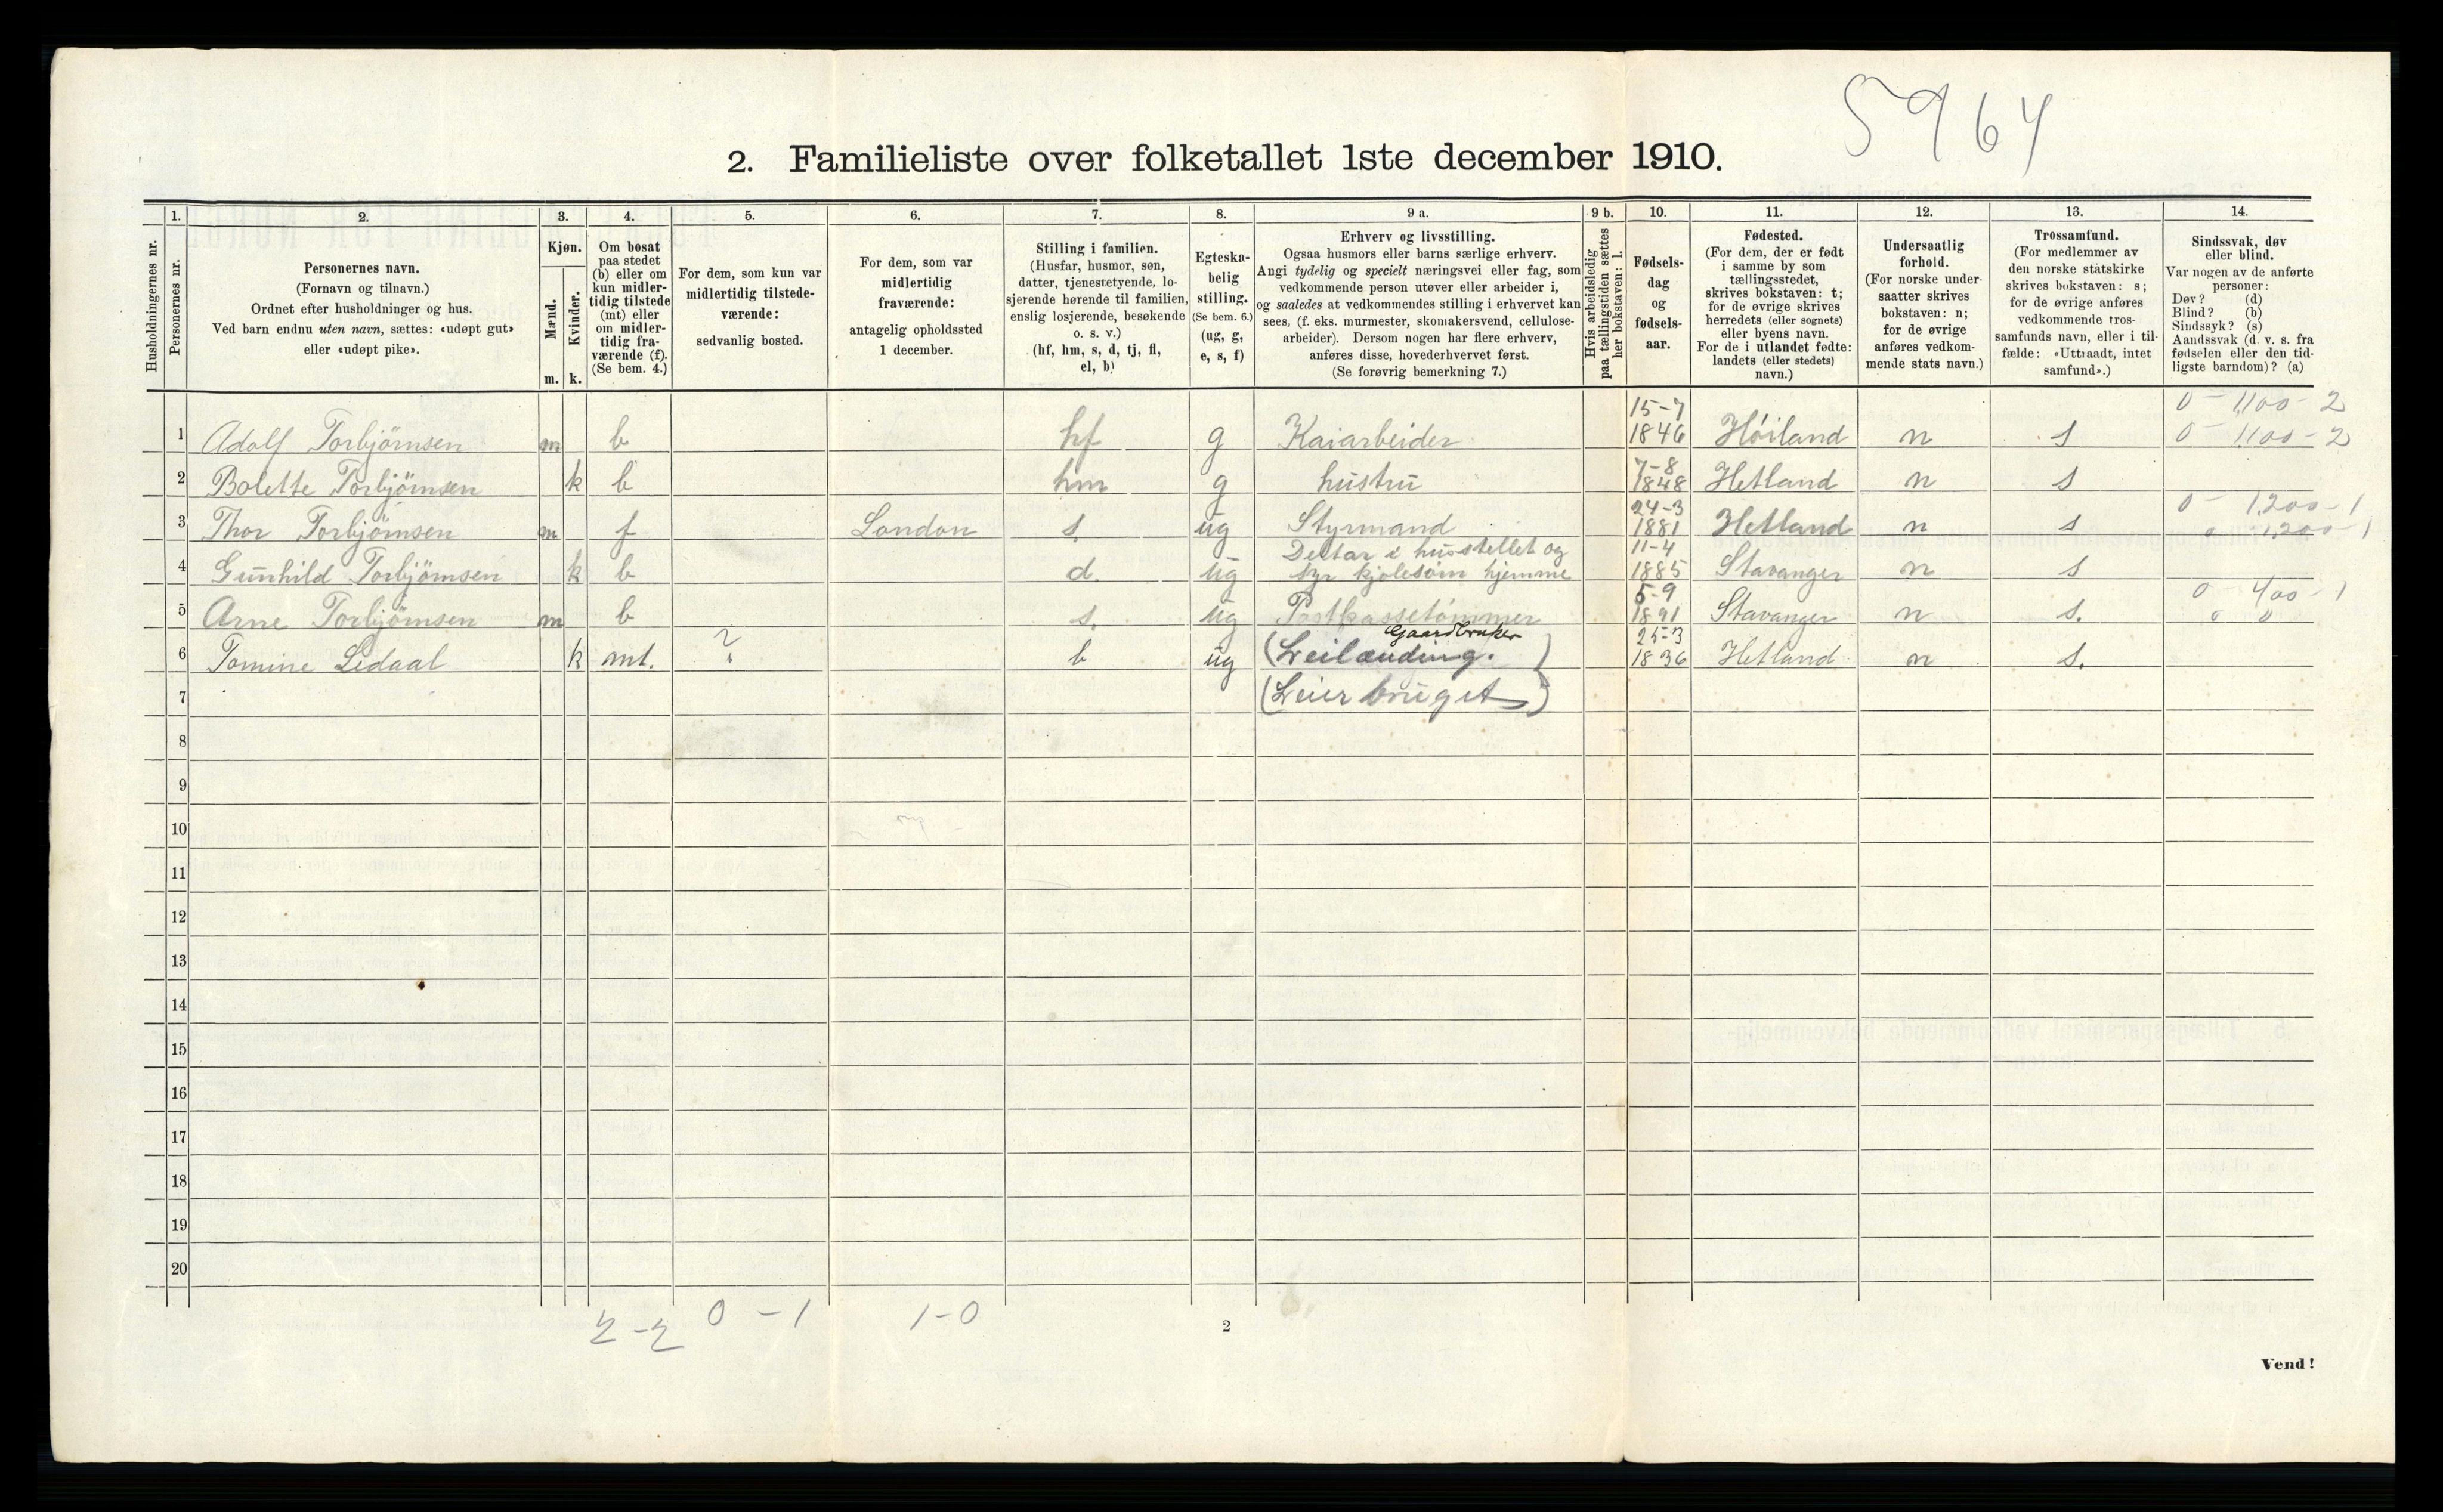 5964
2. Familieliste over folketallet 1ste december 1910.
1. 2. 3. 4. 5. 6. 7. 8. 9 a. 9 b. 10. 11. 12. 13. 14.
Husholdningernes nr.
Personernes nr.
Personernes navn.
(Fornavn og tilnavn.)
Ordnet efter husholdninger og hus.
Ved barn endnu uten navn, sættes: «udøpt gut»
eller «udøpt pike».
Kjøn.
Mænd.
Kvinder.
m. k.
Om bosat
paa stedet
(b) eller om
kun midler-
tidig tilstede
(mt) eller
om midler-
tidig fra-
værende (f).
(Se bem. 4.)
For dem, som kun var
midlertidig tilstede-
værende:
sedvanlig bosted.
For dem, som var
midlertidig
fraværende:
antagelig opholdssted
1 december.
Stilling i familien.
(Husfar, husmor, søn,
datter, tjenestetyende, lo-
sjerende hørende til familien,
enslig losjerende, besøkende
o. s. v.)
(hf, hm, s, d, tj, fl,
el, b)
Egteska-
belig
stilling.
(Se bem. 6.)
(ug, g,
e, s, f)
Erhverv og livsstilling.
Ogsaa husmors eller barns særlige erhverv.
Angi tydelig og specielt næringsvei eller fag, som
vedkommende person utøver eller arbeider i,
og saaledes at vedkommendes stilling i erhvervet kan
sees, (f. eks. murmester, skomakersvend, cellulose-
arbeider). Dersom nogen har flere erhverv,
anføres disse, hovederhvervet først.
(Se forøvrig bemerkning 7.)
Hvis arbeidsledig
paa tællingstiden sættes
her bokstaven: l.
Fødsels-
dag
og
fødsels-
aar.
Fødested.
(For dem, der er født
i samme by som
tællingsstedet,
skrives bokstaven: t;
for de øvrige skrives
herredets (eller sognets)
eller byens navn.
For de i utlandet fødte:
landets (eller stedets)
navn.)
Undersaatlig
forhold.
(For norske under-
saatter skrives
bokstaven: n;
for de øvrige
anføres vedkom-
mende stats navn.)
Trossamfund.
(For medlemmer av
den norske statskirke
skrives bokstaven: s;
for de øvrige anføres
vedkommende tros-
samfunds navn, eller i til-
fælde: «Uttraadt, intet
samfund».)
Sindssvak, døv
eller blind.
Var nogen av de anførte
personer:
Døv? (d)
Blind? (b)
Sindssyk? (s)
Aandssvak (d. v. s. fra
fødselen eller den tid-
ligste barndom)? (a)
15-7 0 - 1,100 - 2
1 Adolf Torbjörnsen m b hf g Kaiarbeider 1846 Höiland n s 0 - 1,100 - 2
7-8
2 Bolette Torbjörnsen k b hm g hustru 1848 Hetland n s
24-3 0 - 1,200 - 1
3 Thor Torbjörnsen m f London s. ug Styrmand 1881 Hetland n s 0 - 1,200 - 1
Deltar i husstellet og 11-4
4 Gunhild Torbjörnsen k b d. ug syr kjolesöm hjemme 1885 Stavanger n s
5-9 0 - 400 - 1
5 Arne Torbjörnsen m b s. ug Postkassetömmer 1891 Stavanger n s. 0 0
Gaardbruker 25-3
6 Tomine Ledaal k mt. ? b ug (Leilænding.) 1836 Hetland n s.
7 (Leier bruget)
8
9
10
11
12
13
14
15
16
17
18
19
20
2-2 0-1 1-0
2
Vend!